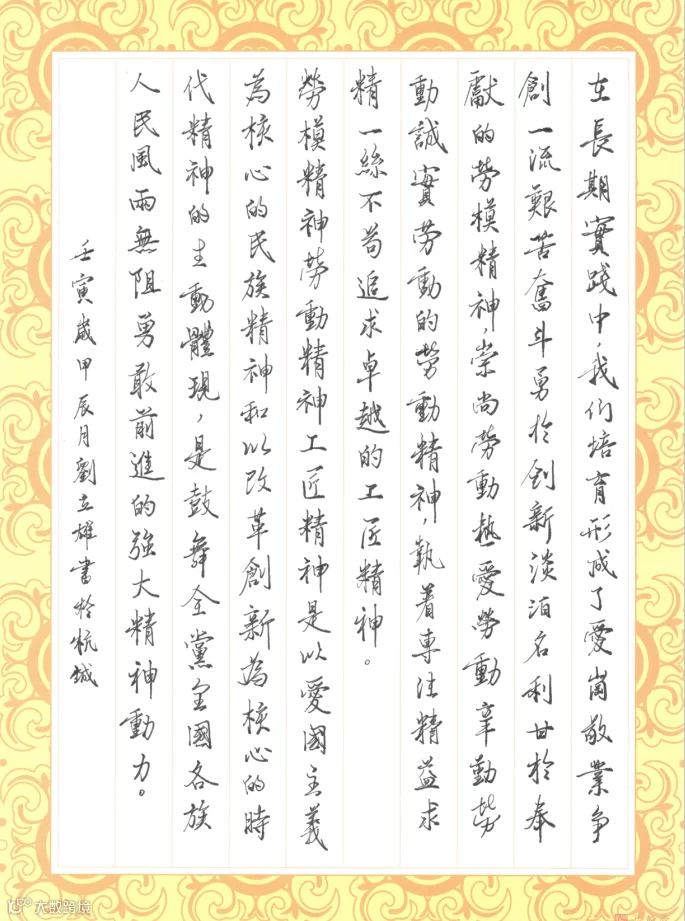 在長期實踐中，我们培育形成了愛崗敬業争
創一流艱苦奮斗勇於創新淡泊名利甘於奉
獻的勞模精神，崇尚勞動熱愛勞動辛勤勞
動誠實劳動的勞動精神，執着專注精益求
精一絲不苟追求卓越的工匠精神。
勞模精神勞動精神工匠精神是以愛國主義
為核心的民族精神和以改革創新為核心的時
代精神的生動體現，是鼓舞全黨全國各族
人民風雨無阻勇敢前進的強大精神動力。
壬寅歲甲辰月劉立雄書於杭城
大数跨境